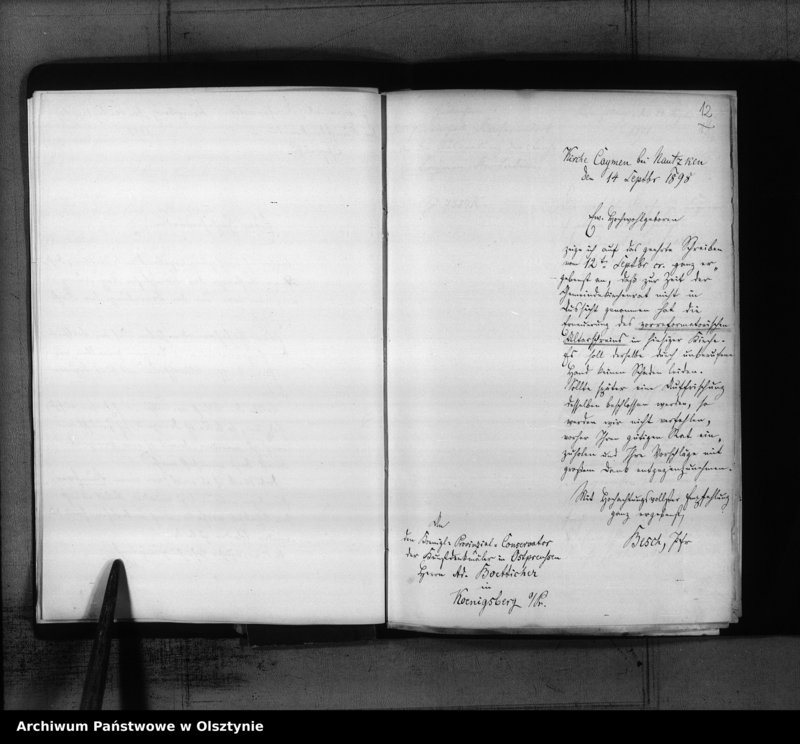 12
Kirche Caymen bei Nautzken
den 14 Septbr 1898
Ew. Hochwohlgeboren
zeige ich auf das geehrte Schreiben
vom 12ten Septbr cr. ganz er-
gebenst an, daß zur Zeit der
Gemeindekirchenrat nicht in
Aussicht genommen hat die
Erneuerung des vorreformatorischen
Altarschreins in hiesiger Kirche.
Es soll derselbe durch unberufene
Hand keinen Schaden leiden.
Sollte später eine Auffrischung
desselben beschlossen werden, so
werden wir nicht verfehlen,
vorher Ihren gütigen Rat ein-
zuholen und Ihre Vorschläge mit
großem Dank entgegenzunehmen.
Mit hochachtungsvollster Empfehlung
ganz ergebenst
Besch, Pfr
An
den Königl. Provinzial-Conservator
der Kunstdenkmäler in Ostpreußen
Herrn Ad. Boetticher
in
Koenigsberg o/Pr.
Archiwum Państwowe w Olsztynie